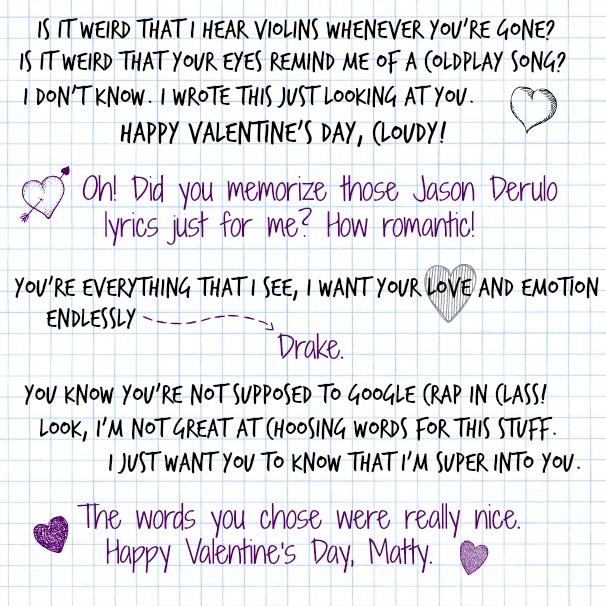 IS IT WEIRD THAT I HEAR VIOLINS WHENEVER YOU'RE GONE?
IS IT WEIRD THAT YOUR EYES REMIND ME OF A COLDPLAY SONG?
I DON'T KNOW. I WROTE THIS JUST LOOKING AT YOU.
HAPPY VALENTINE'S DAY, CLOUDY!
Oh! Did you memorize those Jason Derulo
lyrics just for me? How romantic!
YOU'RE EVERYTHING THAT I SEE, I WANT YOUR LOVE AND EMOTION
ENDLESSLY
Drake.
YOU KNOW YOU'RE NOT SUPPOSED TO GOOGLE CRAP IN CLASS!
LOOK, I'M NOT GREAT AT CHOOSING WORDS FOR THIS STUFF.
I JUST WANT YOU TO KNOW THAT I'M SUPER INTO YOU.
The words you chose were really nice.
Happy Valentine's Day, Matty.